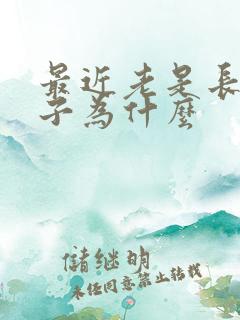 最近老是長
子為什麼
儲继明
未经同意禁止转载